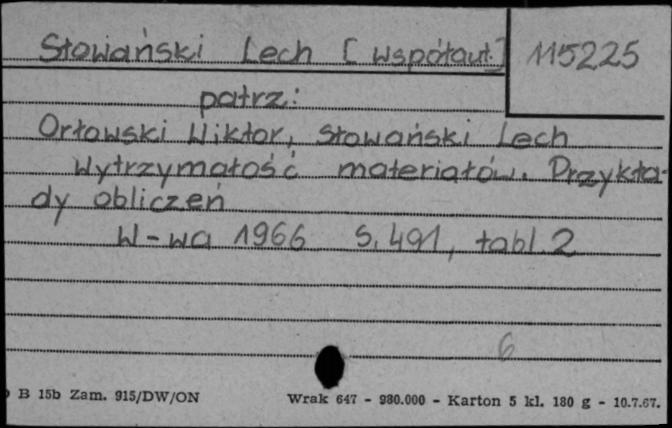 Słowański Lech [współaut.] 115225
patrz:
Orłowski Wiktor, Słowański Lech
Wytrzymałość materiałów. Przykła-
dy obliczeń
W-wa 1966 S. 491, tabl. 2
6
B 15b Zam. 915/DW/ON Wrak 647 - 980.000 - Karton 5 kl. 180 g - 10.7.67.